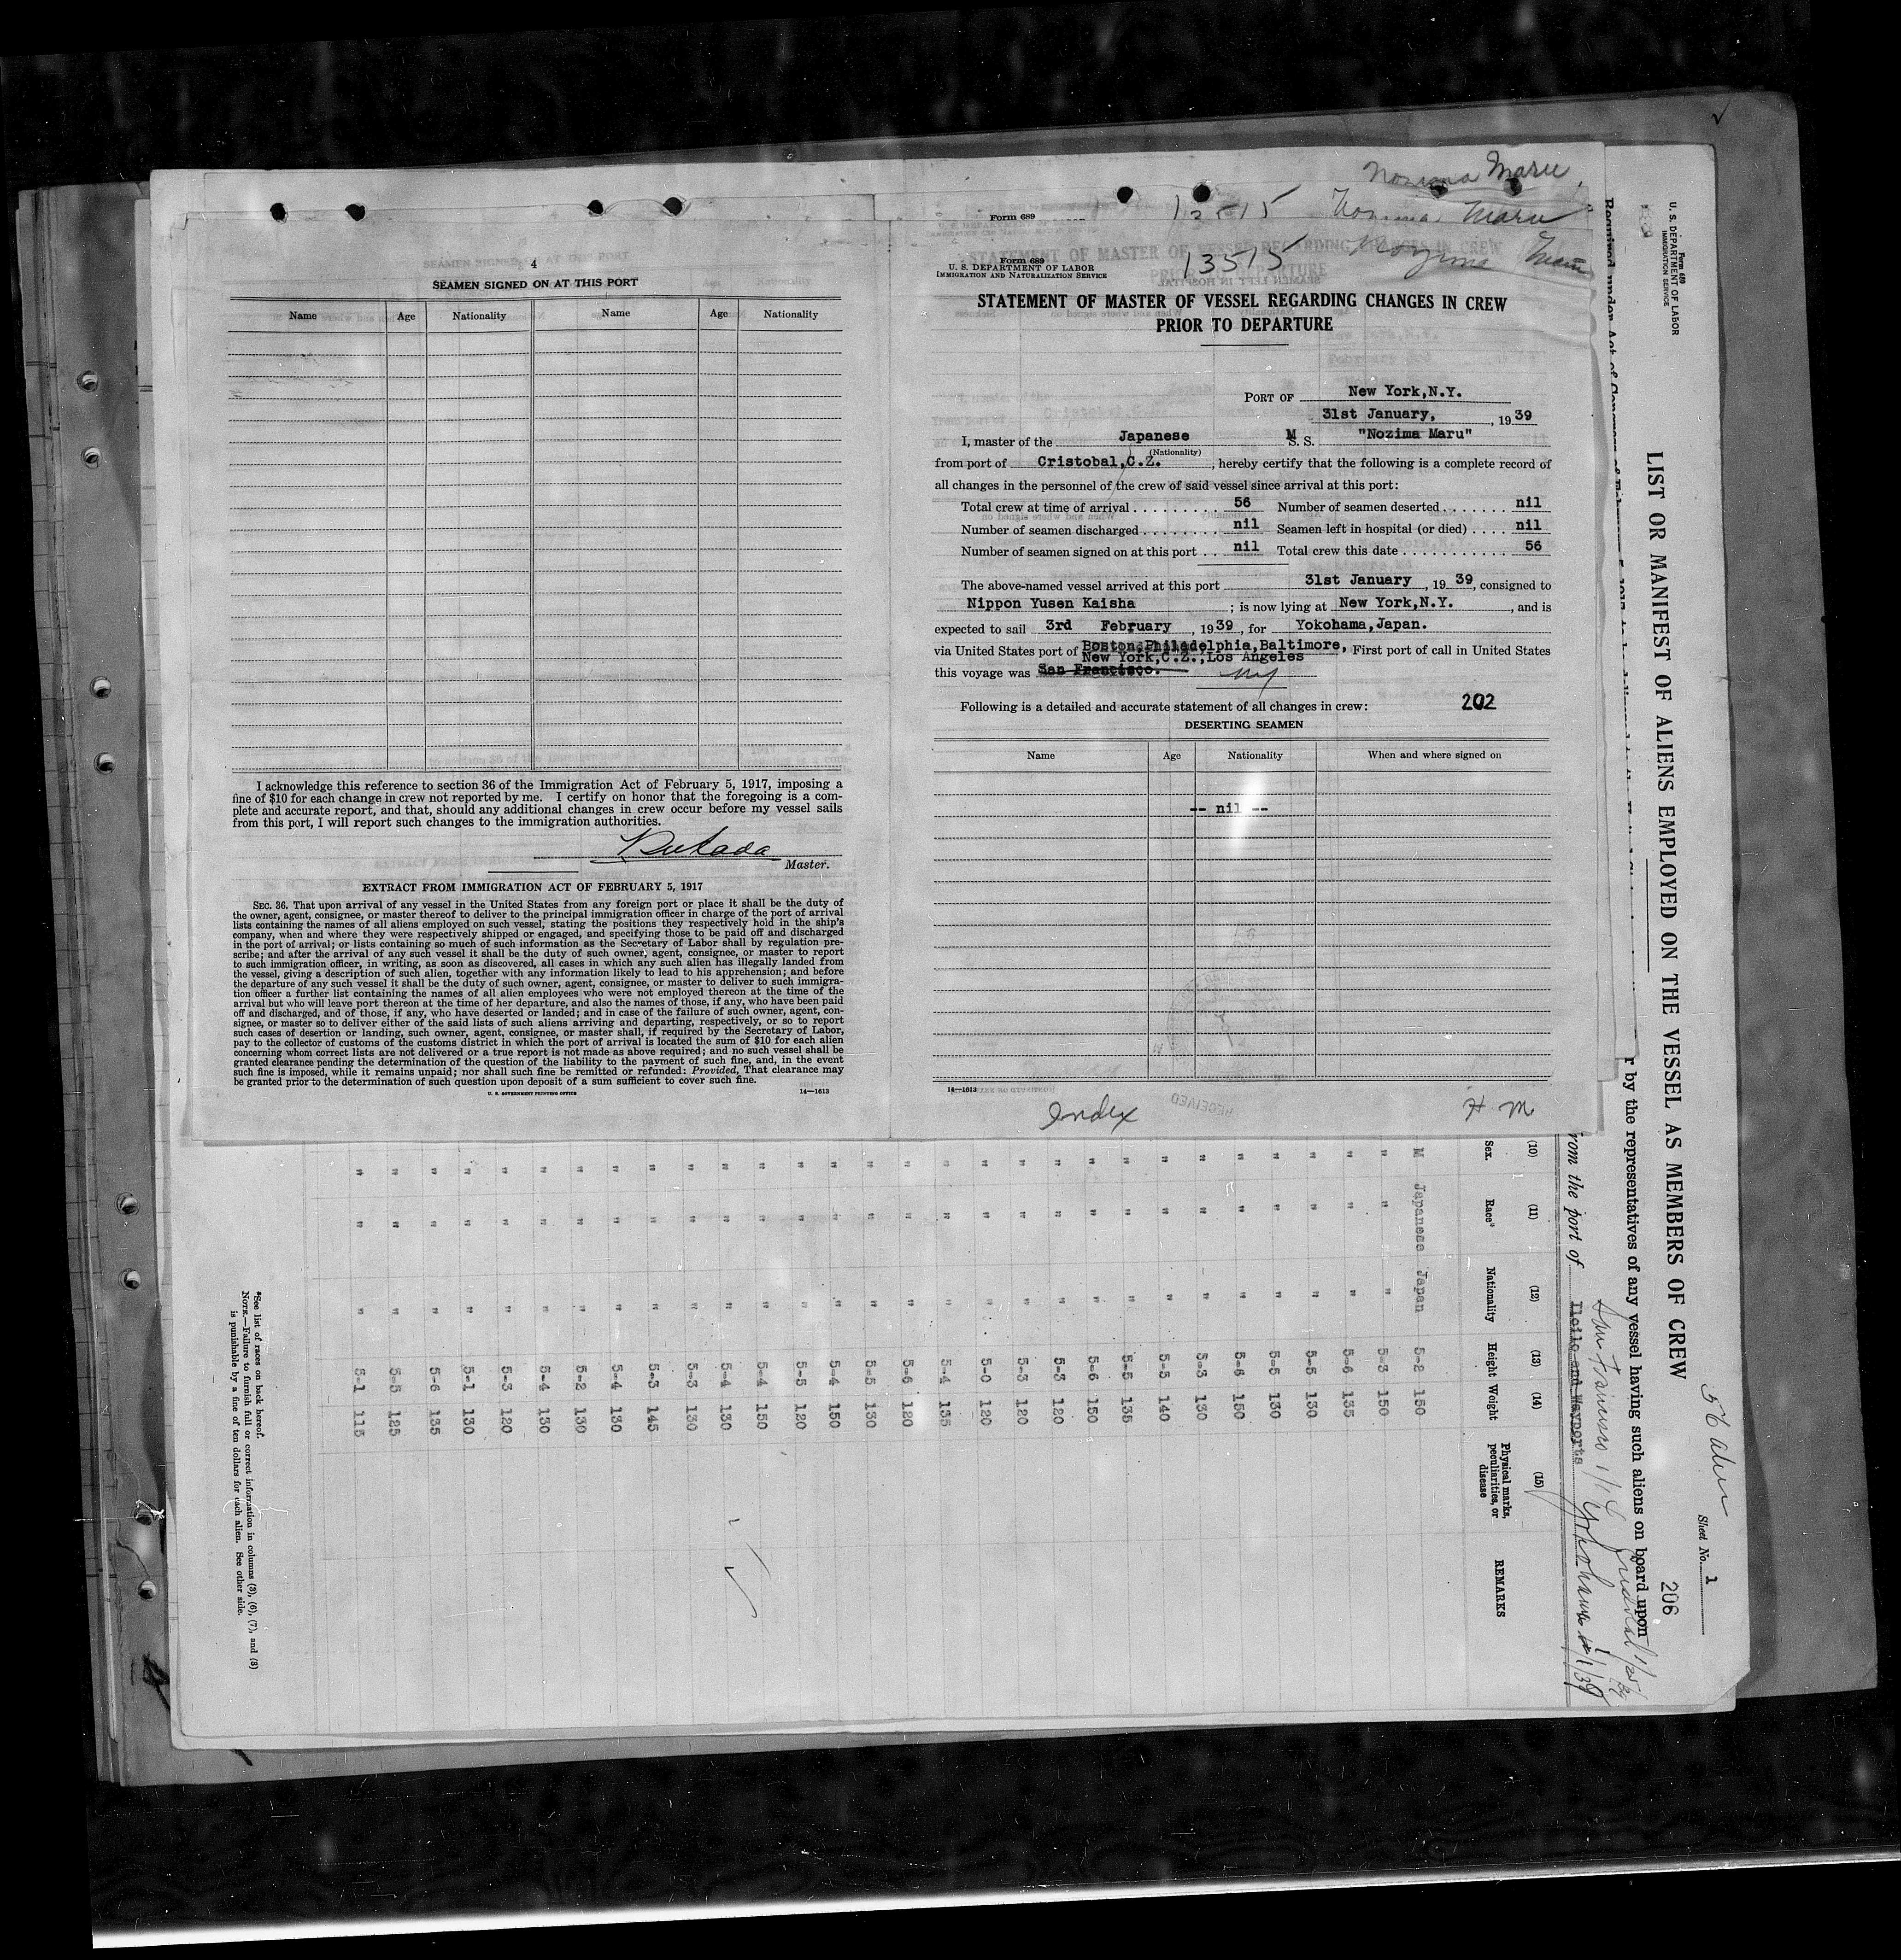 4
SEAMEN SIGNED ON AT THIS PORT
Name Age Nationality Name Age Nationality
I acknowledge this reference to section 36 of the Immigration Act of February 5, 1917, imposing a
fine of $10 for each change in crew not reported by me. I certify on honor that the foregoing is a com-
plete and accurate report, and that, should any additional changes in crew occur before my vessel sails
from this port, I will report such changes to the immigration authorities.
Master.
EXTRACT FROM IMMIGRATION ACT OF FEBRUARY 5, 1917
SEC. 36. That upon arrival of any vessel in the United States from any foreign port or place it shall be the duty of
the owner, agent, consignee, or master thereof to deliver to the principal immigration officer in charge of the port of arrival
lists containing the names of all aliens employed on such vessel, stating the positions they respectively hold in the ship's
company, when and where they were respectively shipped or engaged, and specifying those to be paid off and discharged
in the port of arrival; or lists containing so much of such information as the Secretary of Labor shall by regulation pre-
scribe; and after the arrival of any such vessel it shall be the duty of such owner, agent, consignee, or master to report
to such immigration officer, in writing, as soon as discovered, all cases in which any such alien has illegally landed from
the vessel, giving a description of such alien, together with any information likely to lead to his apprehension; and before
the departure of any such vessel it shall be the duty of such owner, agent, consignee, or master to deliver to such immigra-
tion officer a further list containing the names of all alien employees who were not employed thereon at the time of the
arrival but who will leave port thereon at the time of her departure, and also the names of those, if any, who have been paid
off and discharged, and of those, if any, who have deserted or landed; and in case of the failure of such owner, agent, con-
signee, or master so to deliver either of the said lists of such aliens arriving and departing, respectively, or so to report
such cases of desertion or landing, such owner, agent, consignee, or master shall, if required by the Secretary of Labor,
pay to the collector of customs of the customs district in which the port of arrival is located the sum of $10 for each alien
concerning whom correct lists are not delivered or a true report is not made as above required; and no such vessel shall be
granted clearance pending the determination of the question of the liability to the payment of such fine, and, in the event
such fine is imposed, while it remains unpaid; nor shall such fine be remitted or refunded: Provided, That clearance may
be granted prior to the determination of such question upon deposit of a sum sufficient to cover such fine.
U. S. GOVERNMENT PRINTING OFFICE 14—1613
Nozima Maru
Form 689
Form 689
U. S. DEPARTMENT OF LABOR
IMMIGRATION AND NATURALIZATION SERVICE
13515
STATEMENT OF MASTER OF VESSEL REGARDING CHANGES IN CREW
PRIOR TO DEPARTURE
PORT OF New York,N.Y.
31st January, , 1939
I, master of the Japanese M S. S. "Nozima Maru"
(Nationality)
from port of Cristobal,C.Z. , hereby certify that the following is a complete record of
all changes in the personnel of the crew of said vessel since arrival at this port:
Total crew at time of arrival 56 Number of seamen deserted nil
Number of seamen discharged nil Seamen left in hospital (or died) nil
Number of seamen signed on at this port nil Total crew this date 56
The above-named vessel arrived at this port 31st January , 1939, consigned to
Nippon Yusen Kaisha ; is now lying at New York,N.Y. , and is
expected to sail 3rd February , 1939, for Yokohama,Japan.
via United States port of Boston,Philadelphia,Baltimore, First port of call in United States
New York,C.Z.,Los Angeles
this voyage was San Francisco. ny
Following is a detailed and accurate statement of all changes in crew: 202
DESERTING SEAMEN
Name Age Nationality When and where signed on
-- nil --
14—1613
Index
H. M.
RECEIVED
Form 689
U. S. DEPARTMENT OF LABOR
IMMIGRATION SERVICE
LIST OR MANIFEST OF ALIENS EMPLOYED ON THE VESSEL AS MEMBERS OF CREW
56
Sheet No. 1
206
by the representatives of any vessel having such aliens on board upon
from the port of Iloilo and Wayports
San Francisco Cristobal
Yokohama
(10) (11) (12) (13) (14) (15)
Sex. Race* Nationality Height Weight Physical marks, peculiarities, or disease REMARKS
M Japanese Japan 5-2 150
" " " 5-3 150
" " " 5-6 135
" " " 5-5 130
" " " 5-5 130
" " " 5-6 150
" " " 5-3 130
" " " 5-5 140
" " " 5-5 135
" " " 5-6 150
" " " 5-3 120
" " " 5-3 120
" " " 5-0 120
" " " 5-4 135
" " " 5-6 120
" " " 5-5 130
" " " 5-4 150
" " " 5-5 120
" " " 5-4 150
" " " 5-4 130
" " " 5-3 130
" " " 5-3 145
" " " 5-4 130
" " " 5-2 130
" " " 5-4 130
" " " 5-3 120
" " " 5-1 130
" " " 5-6 135
" " " 5-5 125
" " " 5-1 115
*See list of races on back hereof.
NOTE.—Failure to furnish full or correct information in columns (3), (6), (7), and (8)
is punishable by a fine of ten dollars for each alien. See other side.